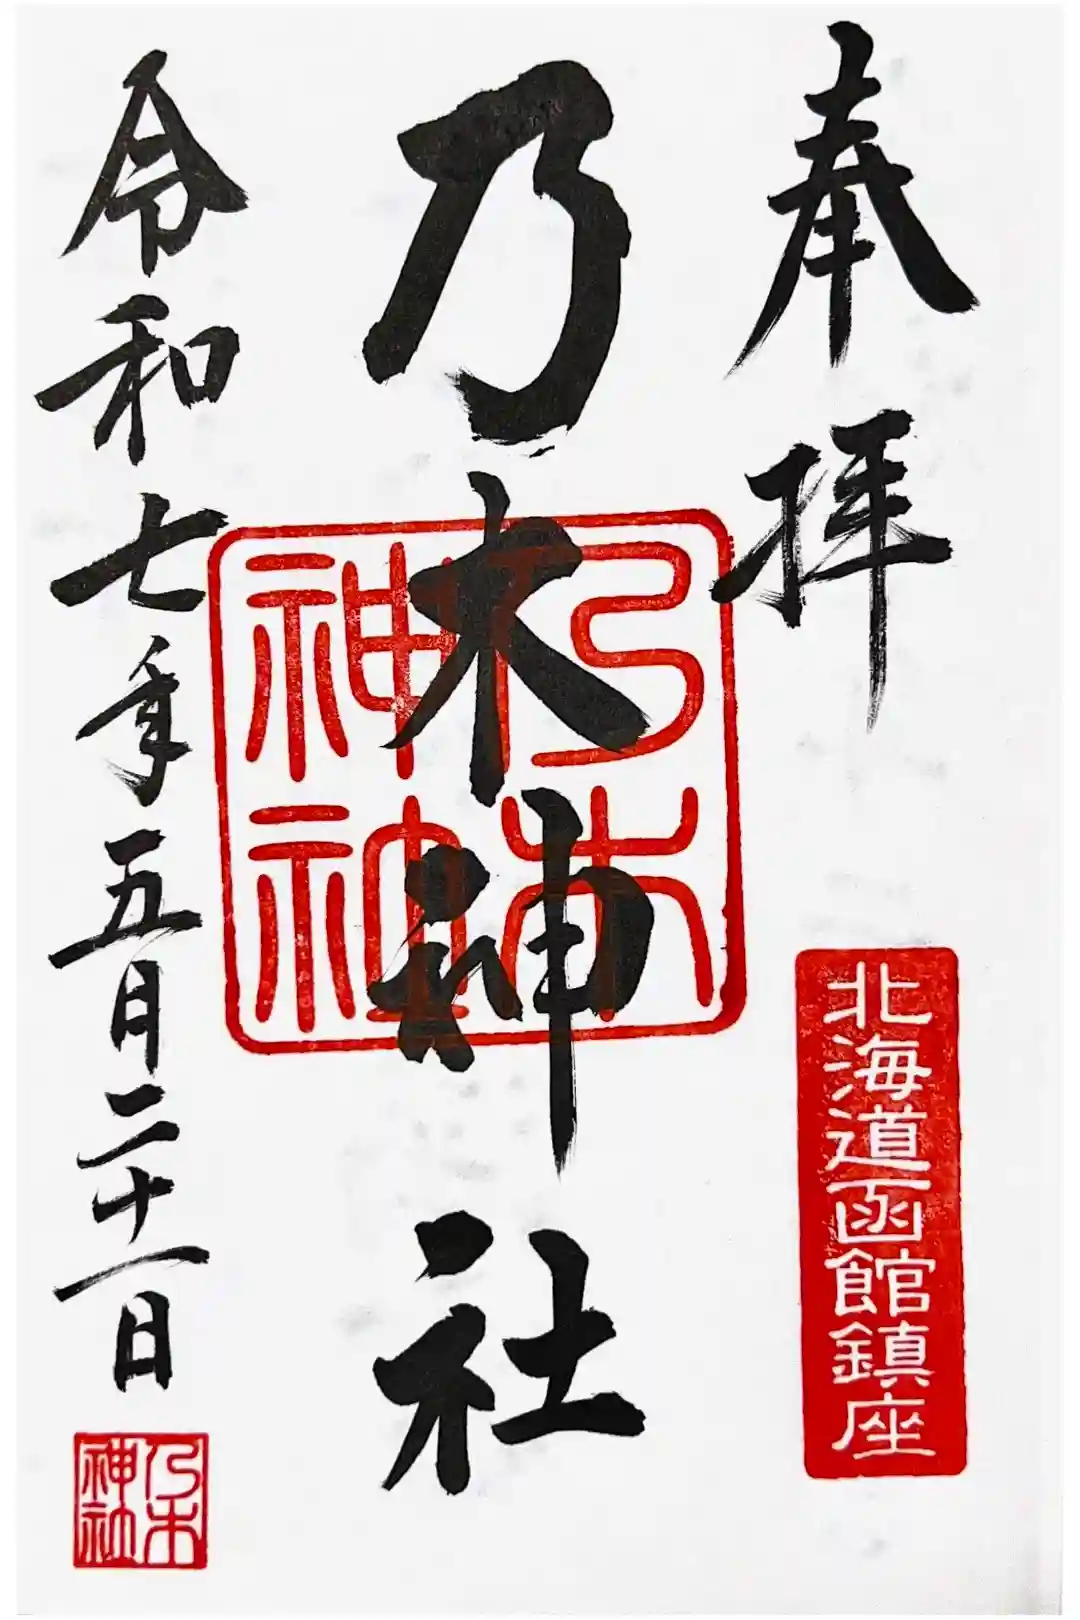 奉拝
北海道函館鎮座
乃木神社
乃木神社
令和七年五月二十一日
乃木神社